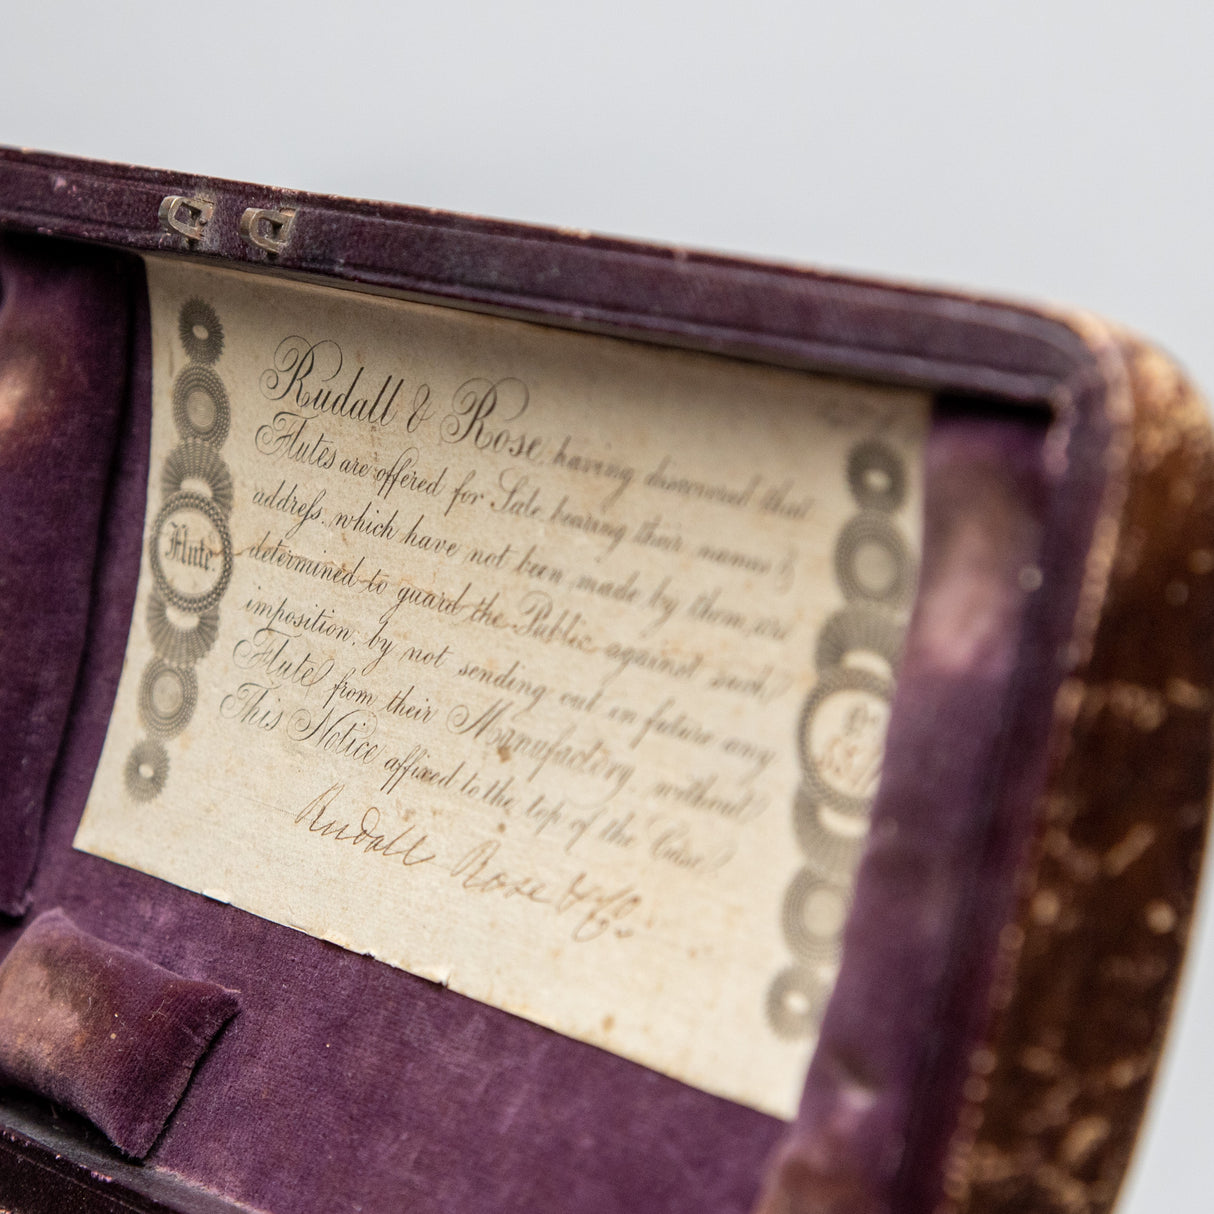 Rudall & Rose, having discovered that
Flutes are offered for Sale, bearing their names &
addreſs, which have not been made by them, are
determined to guard the Public against such
imposition, by not sending out in future any
Flute from their Manufactory, without
This Notice affixed to the top of the Case.
Rudall Rose & Co.
Flute.